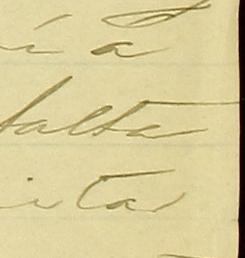 í a
falta
itar